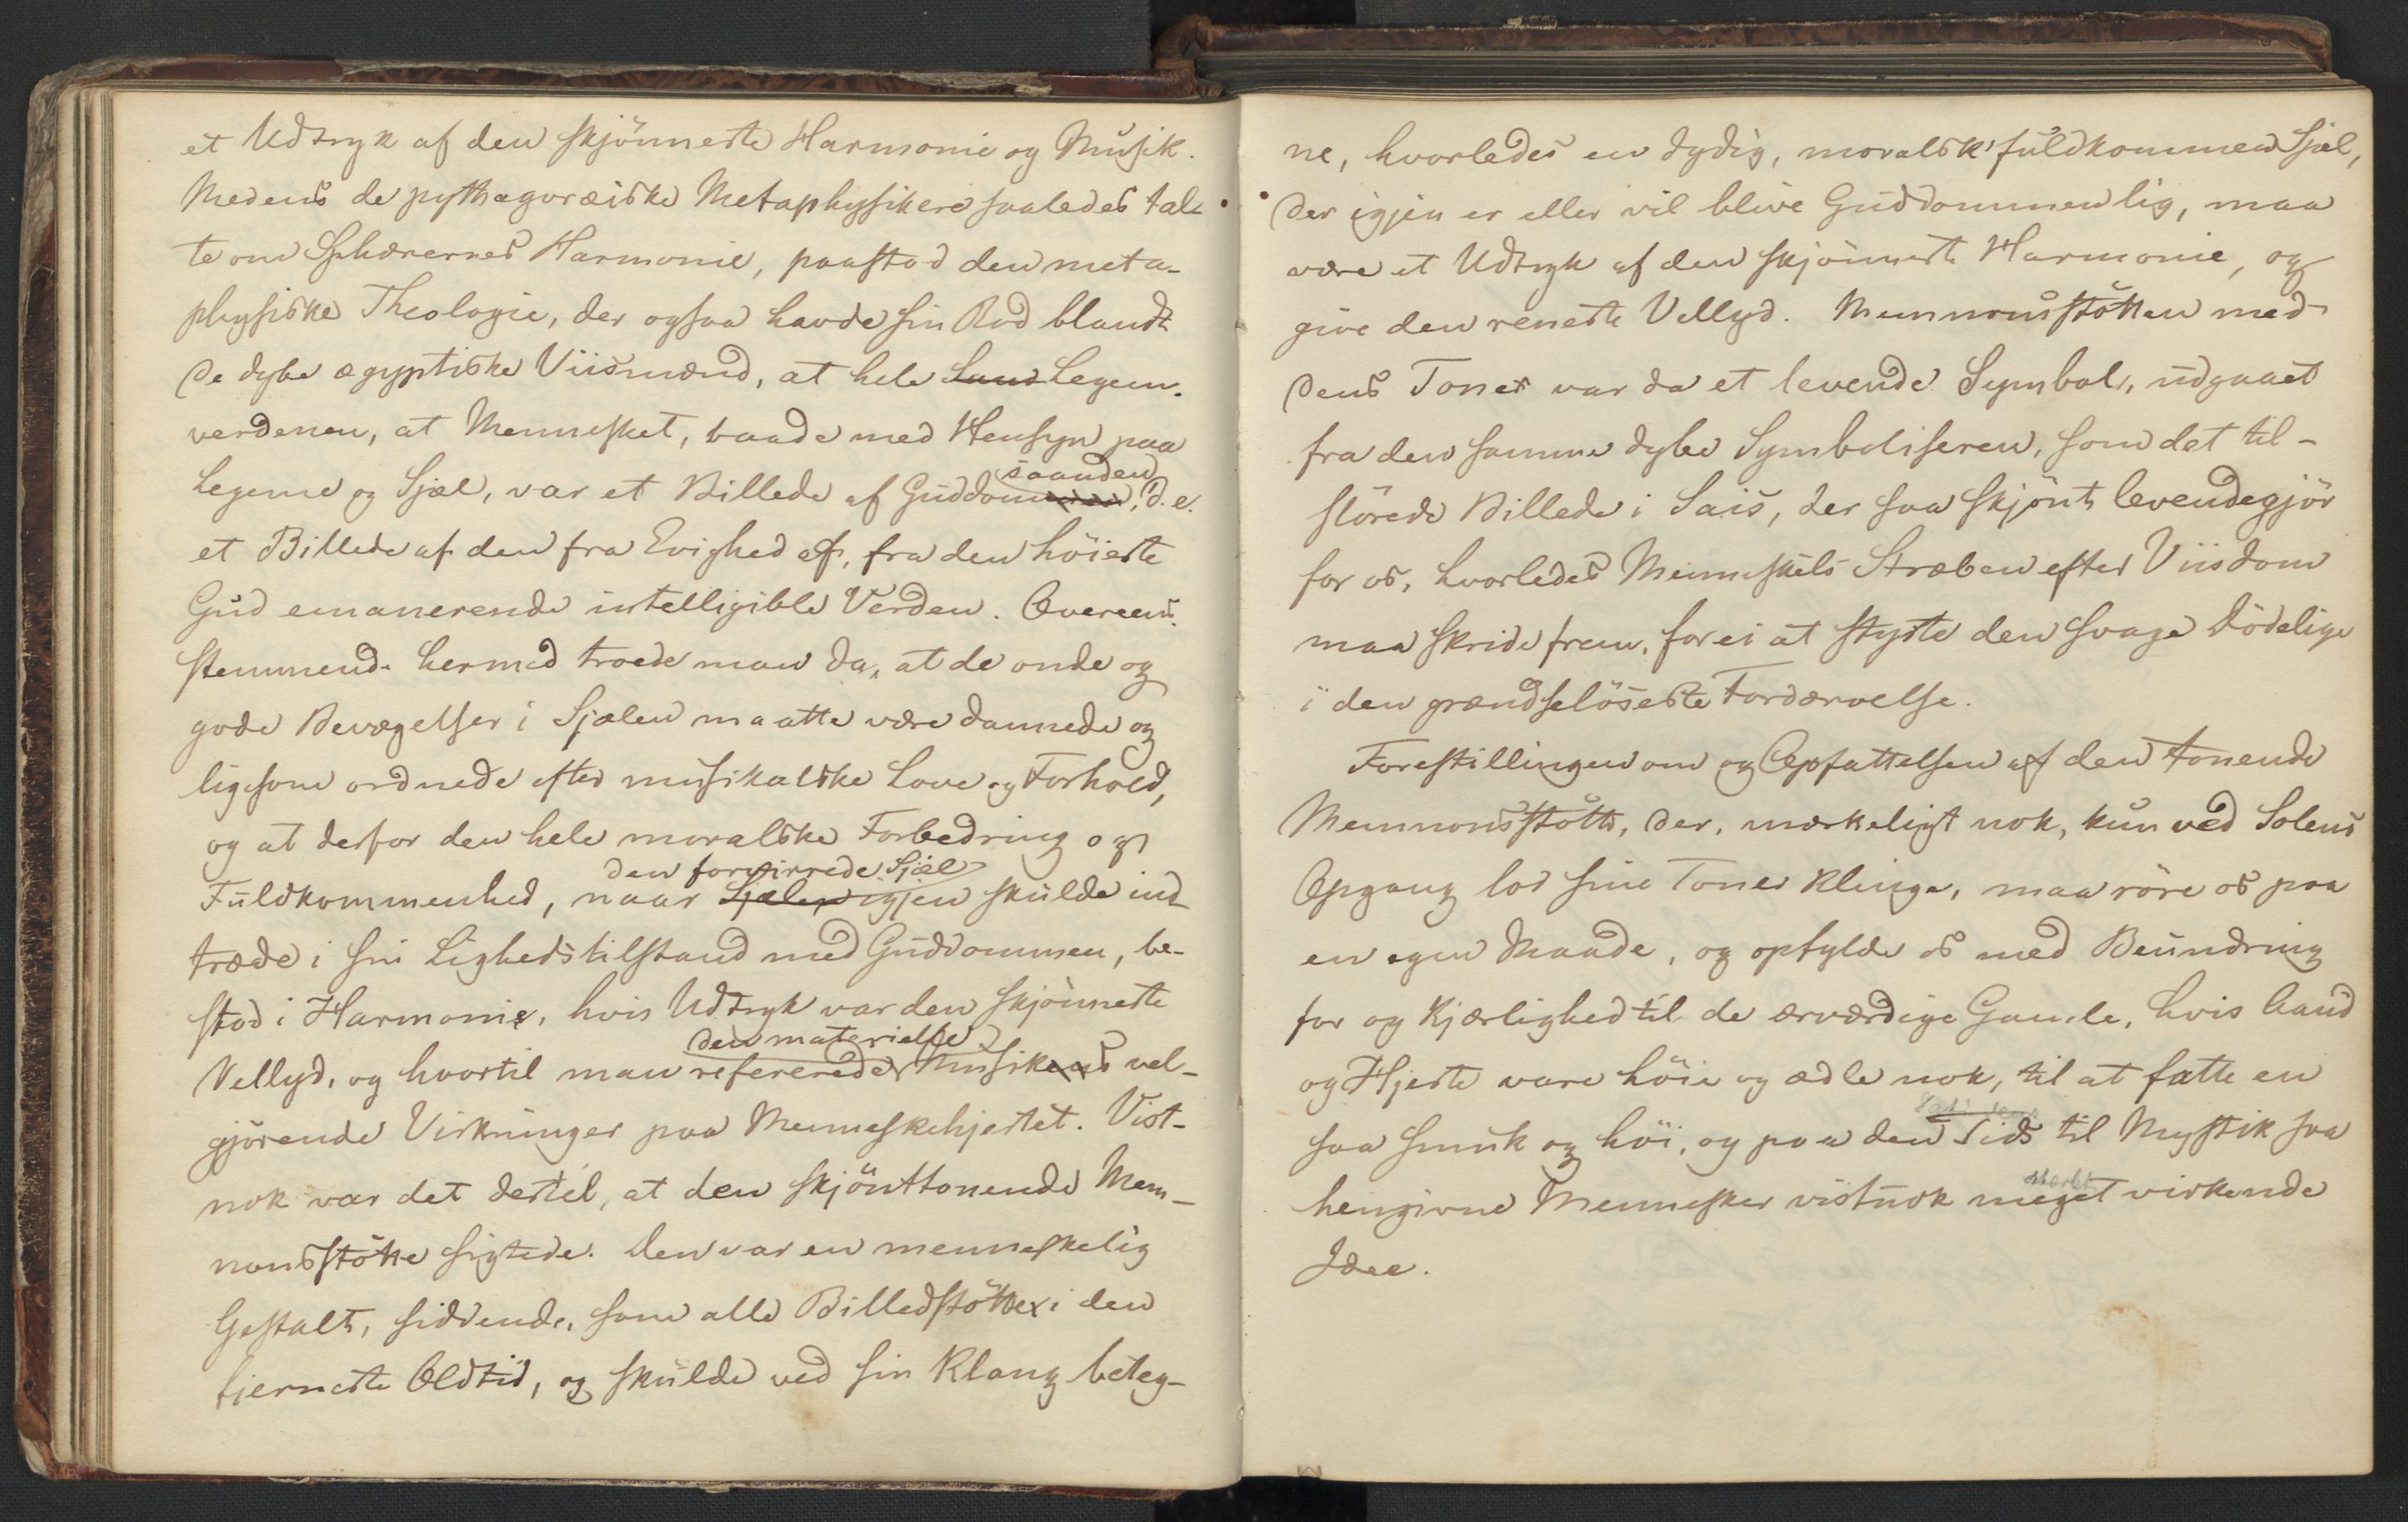 et Udtryk af den skjönneste Harmonie og Musik.
Medens de pythagoræiske Metaphysikere saaledes tal-
te om Sphærernes Harmonie, paastod den meta-
physiske Theologie, der ogsaa havde sin Rod blandt
de dybe ægyptiske Viismænd, at hele Legem-
verdenen, at Mennesket, baade med Hensyn paa
saanden
Legeme og Sjæl, var et Billede af Guddom, d. e.
et Billede af den fra Evighed af, fra den höieste
Gud emanerende intelligible Verden. Overeens-
stemmende hermed troede man da, at de onde og
gode Bevægelser i Sjælen maatte være dannede og
ligesom ordnede efter musikalske Love og Forhold,
og at derfor den hele moralske Forbedring og
den forvirrede Sjæl
Fuldkommenhed, naar Sjælen igjen skulde ind-
træde i sin Lighedstilstand med Guddommen, be-
stod i Harmonie, hvis Udtryk var den skjönneste
den materielle
Vellyd, og hvortil man refererede Musikens vel-
gjörende Virkninger paa Menneskehjertet. Vist-
nok var det dertil, at den skjönttonende Mem-
nonsstötte sigtede. Den var en menneskelig
Gestalt, siddende, som alle Billedstötter i den
fjerneste Oldtid, og skulde ved sin Klang beteg-
ne, hvorledes en dydig, moralsk fuldkommen Sjæl,
der igjen er eller vil blive Guddommen lig, maa
være et Udtryk af den skjönneste Harmonie, og
give den reneste Vellyd. Memnonsstötten med
dens Toner var da et levende Symbol, udgaaet
fra den samme dybe Symboliseren, som det til-
slörede Billede i Sais, der saa skjönt levendegjör
for os, hvorledes Menneskets Stræben efter Viisdom
maa skride frem, for ei at styrte den svage Dödelige
i den grændselöseste Fordærvelse.
Forestillingen om og Opfattelsen af den tonende
Memnonsstötte, der, mærkeligt nok, kun ved Solens
Opgang lod sine Toner klinge, maa röre os paa
en egen Maade, og opfylde os med Beundring
for og Kjærlighed til de ærværdige Gamle, hvis Aand
og Hjerte vare höie og ædle nok, til at fatte en
saa smuk og höi, og paa den Tids til Mystik saa
stærkt
hengivne Mennesker vistnok meget virkende
Idee.